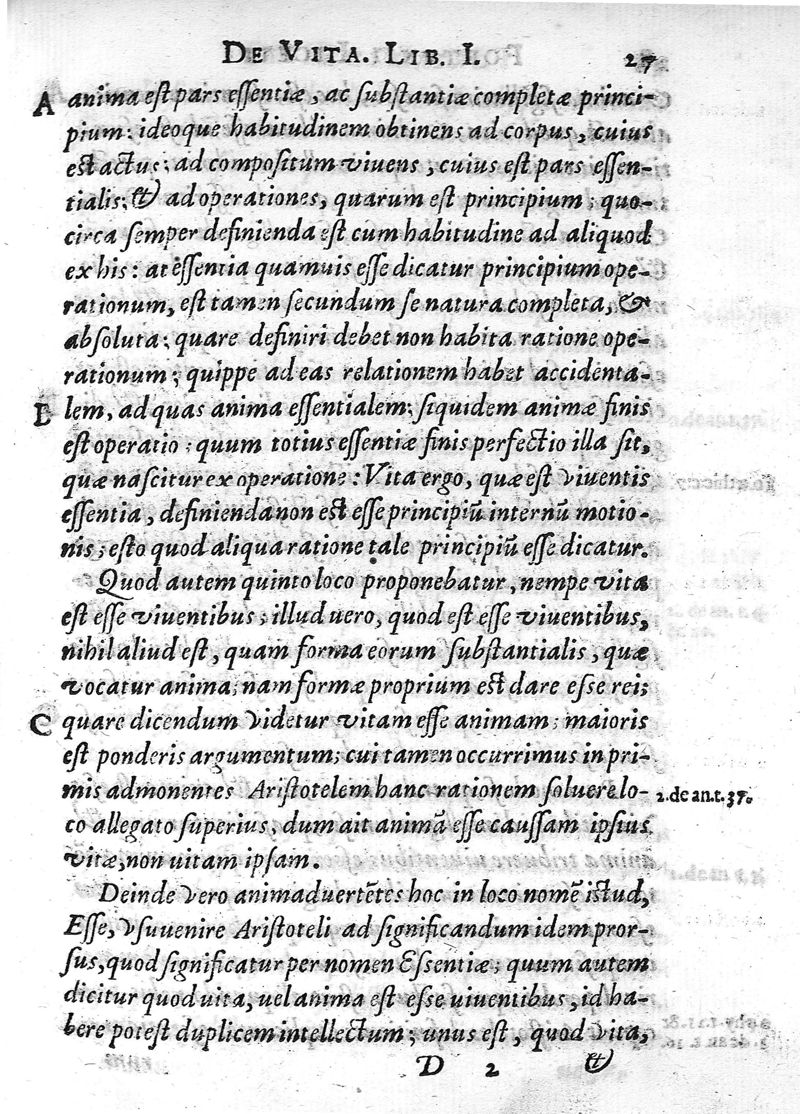 DE VITA. LIB. I. 27
A anima est pars essentiæ, ac substantiæ completæ princi-
pium: ideoque habitudinem obtinens ad corpus, cuius
est actus; ad compositum viuens, cuius est pars essen-
tialis; & ad operationes, quarum est principium; quo-
circa semper definienda est cum habitudine ad aliquod
ex his: at essentia quamuis esse dicatur principium ope-
rationum, est tamen secundum se natura completa, &
absoluta; quare definiri debet non habita ratione ope-
rationum; quippe ad eas relationem habet accidenta-
B lem, ad quas anima essentialem; siquidem animæ finis
est operatio; quum totius essentiæ finis perfectio illa sit,
quæ nascitur ex operatione: Vita ergo, quæ est viuentis
essentia, definienda non est esse principiū internū motio-
nis; esto quod aliqua ratione tale principiū esse dicatur.
Quod autem quinto loco proponebatur, nempe vita
est esse viuentibus; illud uero, quod est esse viuentibus,
nihil aliud est, quam forma eorum substantialis, quæ
vocatur anima; nam formæ proprium est dare esse rei;
C quare dicendum videtur vitam esse animam; maioris
est ponderis argumentum; cui tamen occurrimus in pri-
mis admonentes Aristotelem hanc rationem soluere lo- 2. de an. t. 37.
co allegato superius, dum ait animā esse caussam ipsius
vitæ, non uitam ipsam.
Deinde vero animaduertētes hoc in loco nomē istud,
Esse, vsuuenire Aristoteli ad significandum idem pror-
sus, quod significatur per nomen Essentiæ; quum autem
dicitur quod uita, uel anima est esse uiuentibus, id ha-
bere potest duplicem intellectum; unus est, quod vita,
D 2 &